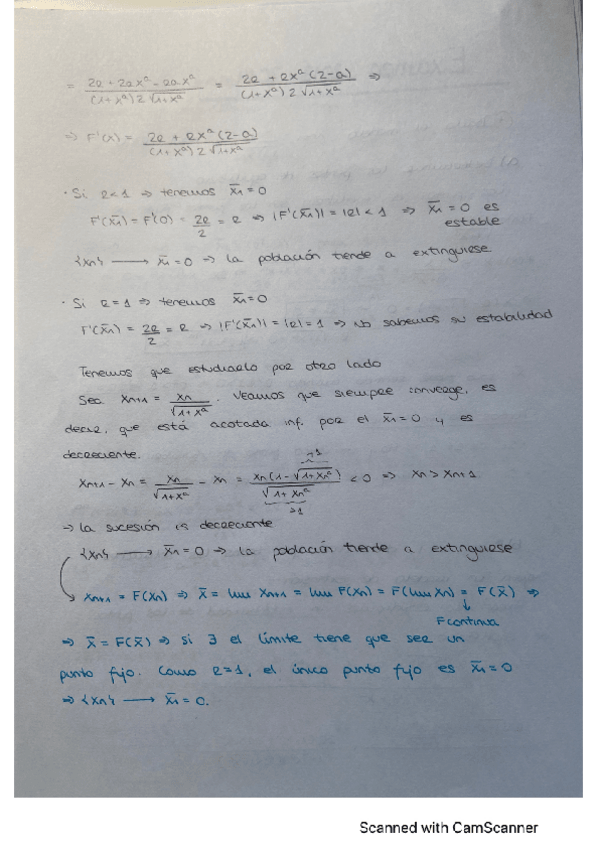 = 2r + 2rx^a - rax^a / (1+x^a) 2 √1+x^a = 2r + rx^a (2-a) / (1+x^a) 2 √1+x^a ⇒
⇒ F'(x) = 2r + rx^a (2-a) / (1+x^a) 2 √1+x^a
· Si r<1 ⇒ tenemos x̄₁=0
F'(x̄₁) = F'(0) = 2r/2 = r ⇒ |F'(x̄₁)| = |r| < 1 ⇒ x̄₁ = 0 es
estable
{xn} ⟶ x̄₁=0 ⇒ la población tiende a extinguirse
· Si r=1 ⇒ tenemos x̄₁=0
F'(x̄₁) = 2r/2 = r ⇒ |F'(x̄₁)| = |r| = 1 ⇒ No sabemos su estabilidad
Tenemos que estudiarlo por otro lado
Sea xn+1 = xn / √1+x^a . Veamos que siempre converge, es
decir, que está acotada inf. por el x̄₁=0 y es
decreciente.
xn+1 - xn = xn / √1+x^a - xn = xn (1-√1+xn^a) / √1+xn^a < 0 ⇒ xn > xn+1
>1
>1
→ la sucesión is decreciente
{xn} ⟶ x̄₁ = 0 ⇒ la población tiende a extinguirse
xn+1 = F(xn) ⇒ x̄ = lim xn+1 = lim F(xn) = F(lim xn) = F(x̄) ⇒
↓
F continua
⇒ x̄ = F(x̄) ⇒ si ∃ el límite tiene que ser un
punto fijo. Como r=1, el único punto fijo es x̄₁=0
⇒ {xn} ⟶ x̄₁=0.
Scanned with CamScanner